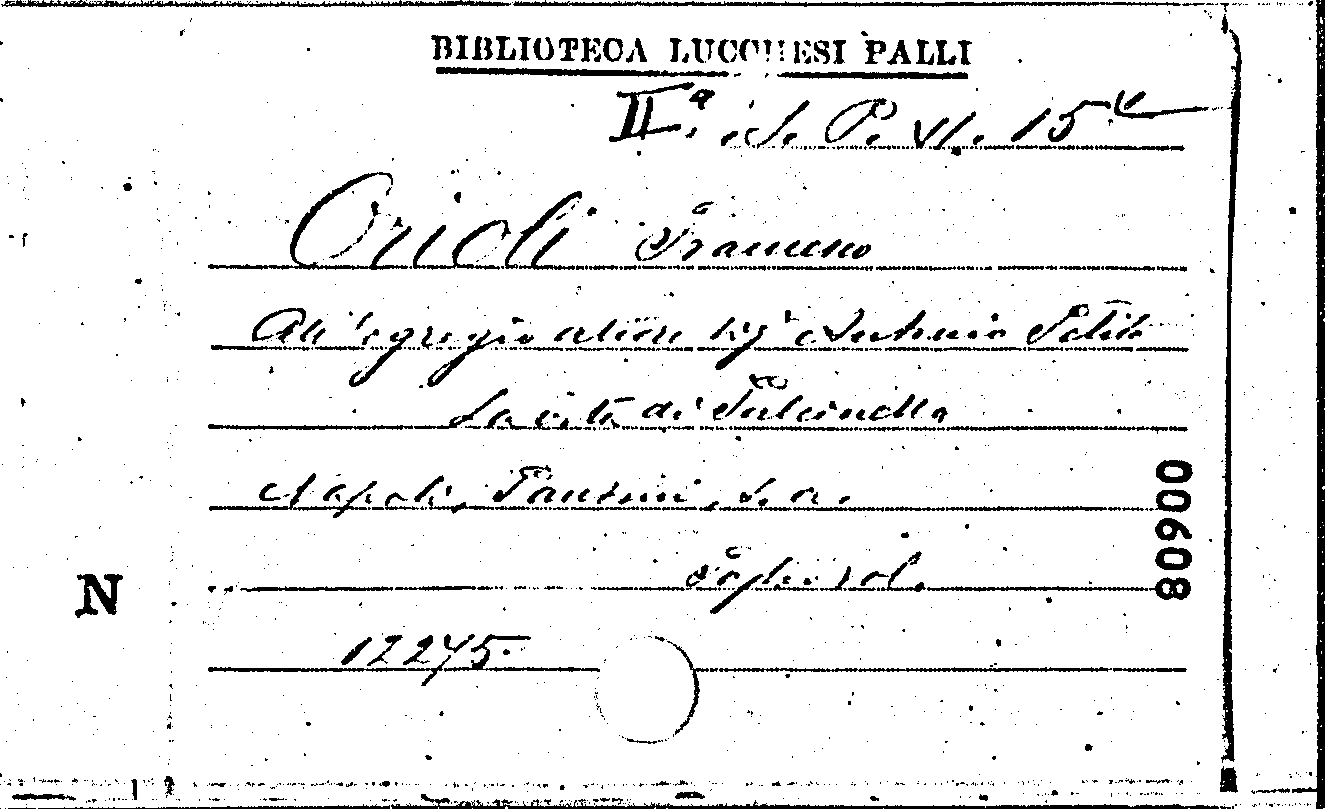 BIBLIOTECA LUCCHESI PALLI
IIª. S. P. VI. 15
Orioli Francesco
All'egregio attore sigʳ Antonio Petito
La vita di Pulcinella
Napoli, Panzini, s. a.
Foglio vol.
12275.
N
00608